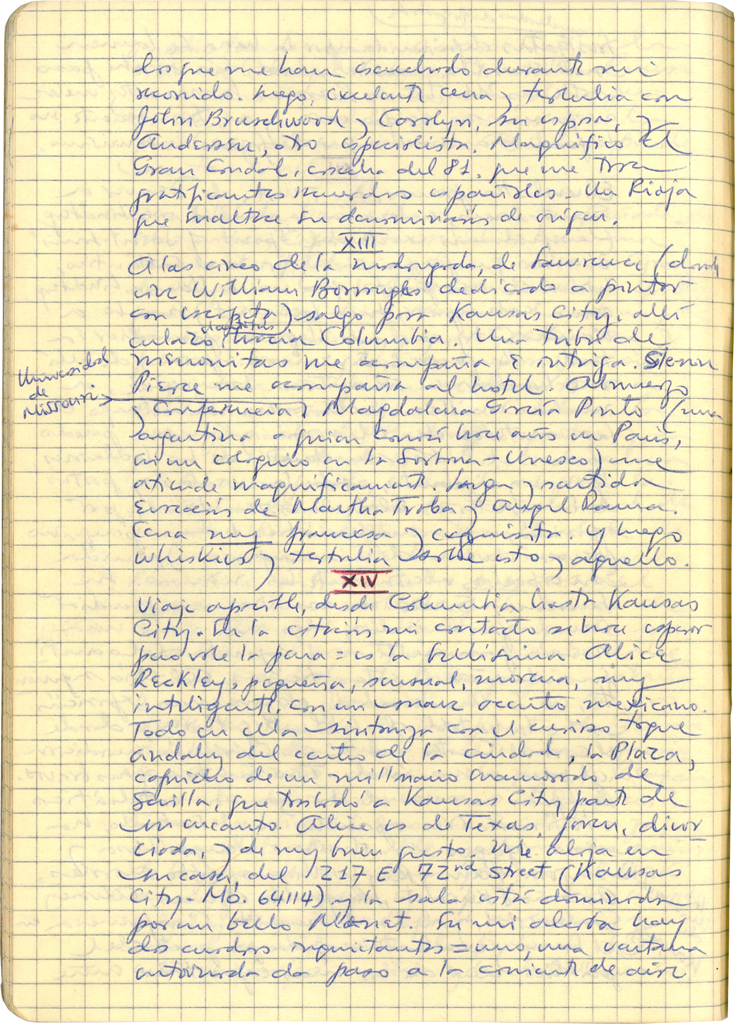 los que me han escuchado durante mi
recorrido. Luego, excelente cena y tertulia con
John Brushwood y Carolyn, su esposa, y
Anderson, otro especialista. Magnífico El
Gran Condal, cosecha del 81, que me trae
gratificantes recuerdos españoles. Un Rioja
que enaltece su denominación de origen.
XIII
A las cinco de la madrugada, de Lawrence (donde
vive William Borroughs dedicado a pintar
con escopeta) salgo para Kansas City, allí
enlazo hacia Columbia. Una tribu de
menonitas me acompaña e intriga.
Universidad
de
Missouri
Pierce me acompaña al hotel. Almuerzo
y conferencia y Magdalena García Pinto (una
argentina a quien conocí hace años en París,
en un coloquio en la Sorbona-Unesco) me
atiende magníficamente. Larga y sentida
evocación de Martha Traba y Angel Rama.
Cena muy francesa y exquisita. Y luego
whiskies y tertulia sobre esto y aquello.
XIV
Viaje apacible, desde Columbia hasta Kansas
City. En la estación mi contacto se hace esperar
pero vale la pena = es la bellísima Alice
Reckley, pequeña, sensual, morena, muy
inteligente, con un suave acento mexicano.
Todo en ella sintoniza con el curioso toque
andaluz del centro de la ciudad, la Plaza,
capricho de un millonario enamorado de
Sevilla, que trasladó a Kansas City parte de
su encanto. Alice es de Texas, joven, divor
ciada, y de muy buen gusto. Me aloja en
su casa, del 217 E 72nd Street (Kansas
City-Mo. 64114) y la sala está dominada
por un bello Monet. En mi alcoba hay
dos cuadros inquietantes = uno, una ventana
entornada da paso a la corriente de aire